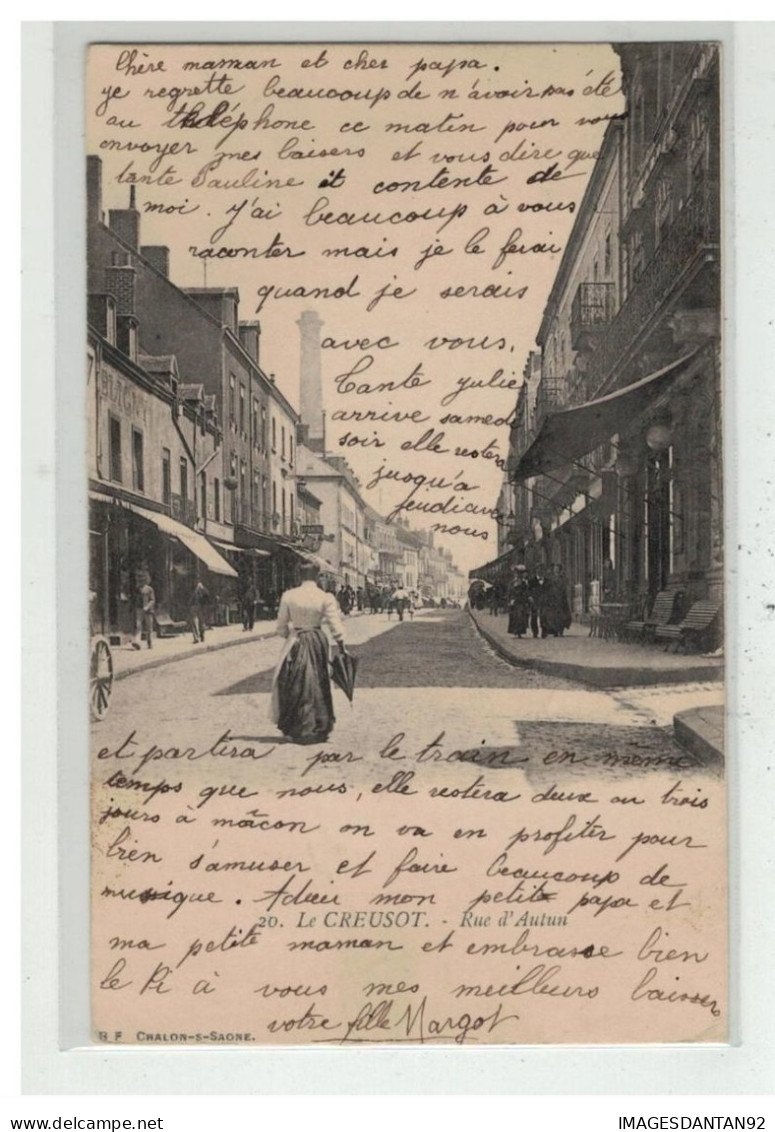 Chère maman et cher papa.
je regrette beaucoup de n'avoir pas été
au téléphone ce matin pour vous
envoyer mes baisers et vous dire que
tante Pauline et contente de
moi. J'ai beaucoup à vous
raconter mais je le ferai
quand je serais
avec vous.
Tante Julie
arrive samedi
soir elle restera
jusqu'a
jeudi avec
nous
et partira par le train en même
temps que nous, elle restera deux ou trois
jours à mâcon on va en profiter pour
bien s'amuser et faire beaucoup de
musique. Adieu mon petit papa et
20. LE CREUSOT. - Rue d'Autun
ma petite maman et embrasse bien
le Ri à vous mes meilleurs baisers
votre fille Margot
B F CHALON-S-SAONE.
IMAGESDANTAN92
delcampe.net